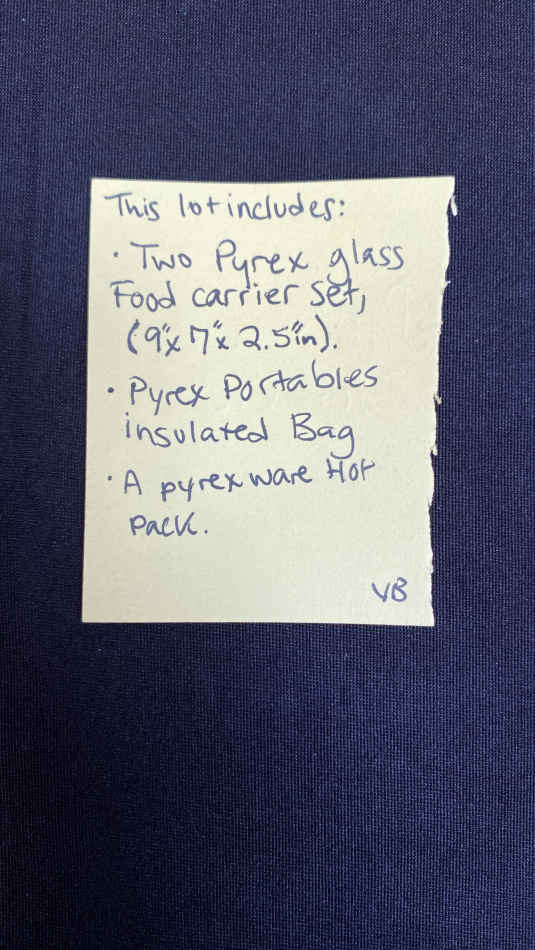 This lot includes:
· Two Pyrex glass
Food carrier set,
(9"x 7"x 2.5"in).
· Pyrex Portables
insulated Bag
· A pyrex ware Hot
Pack.
VB